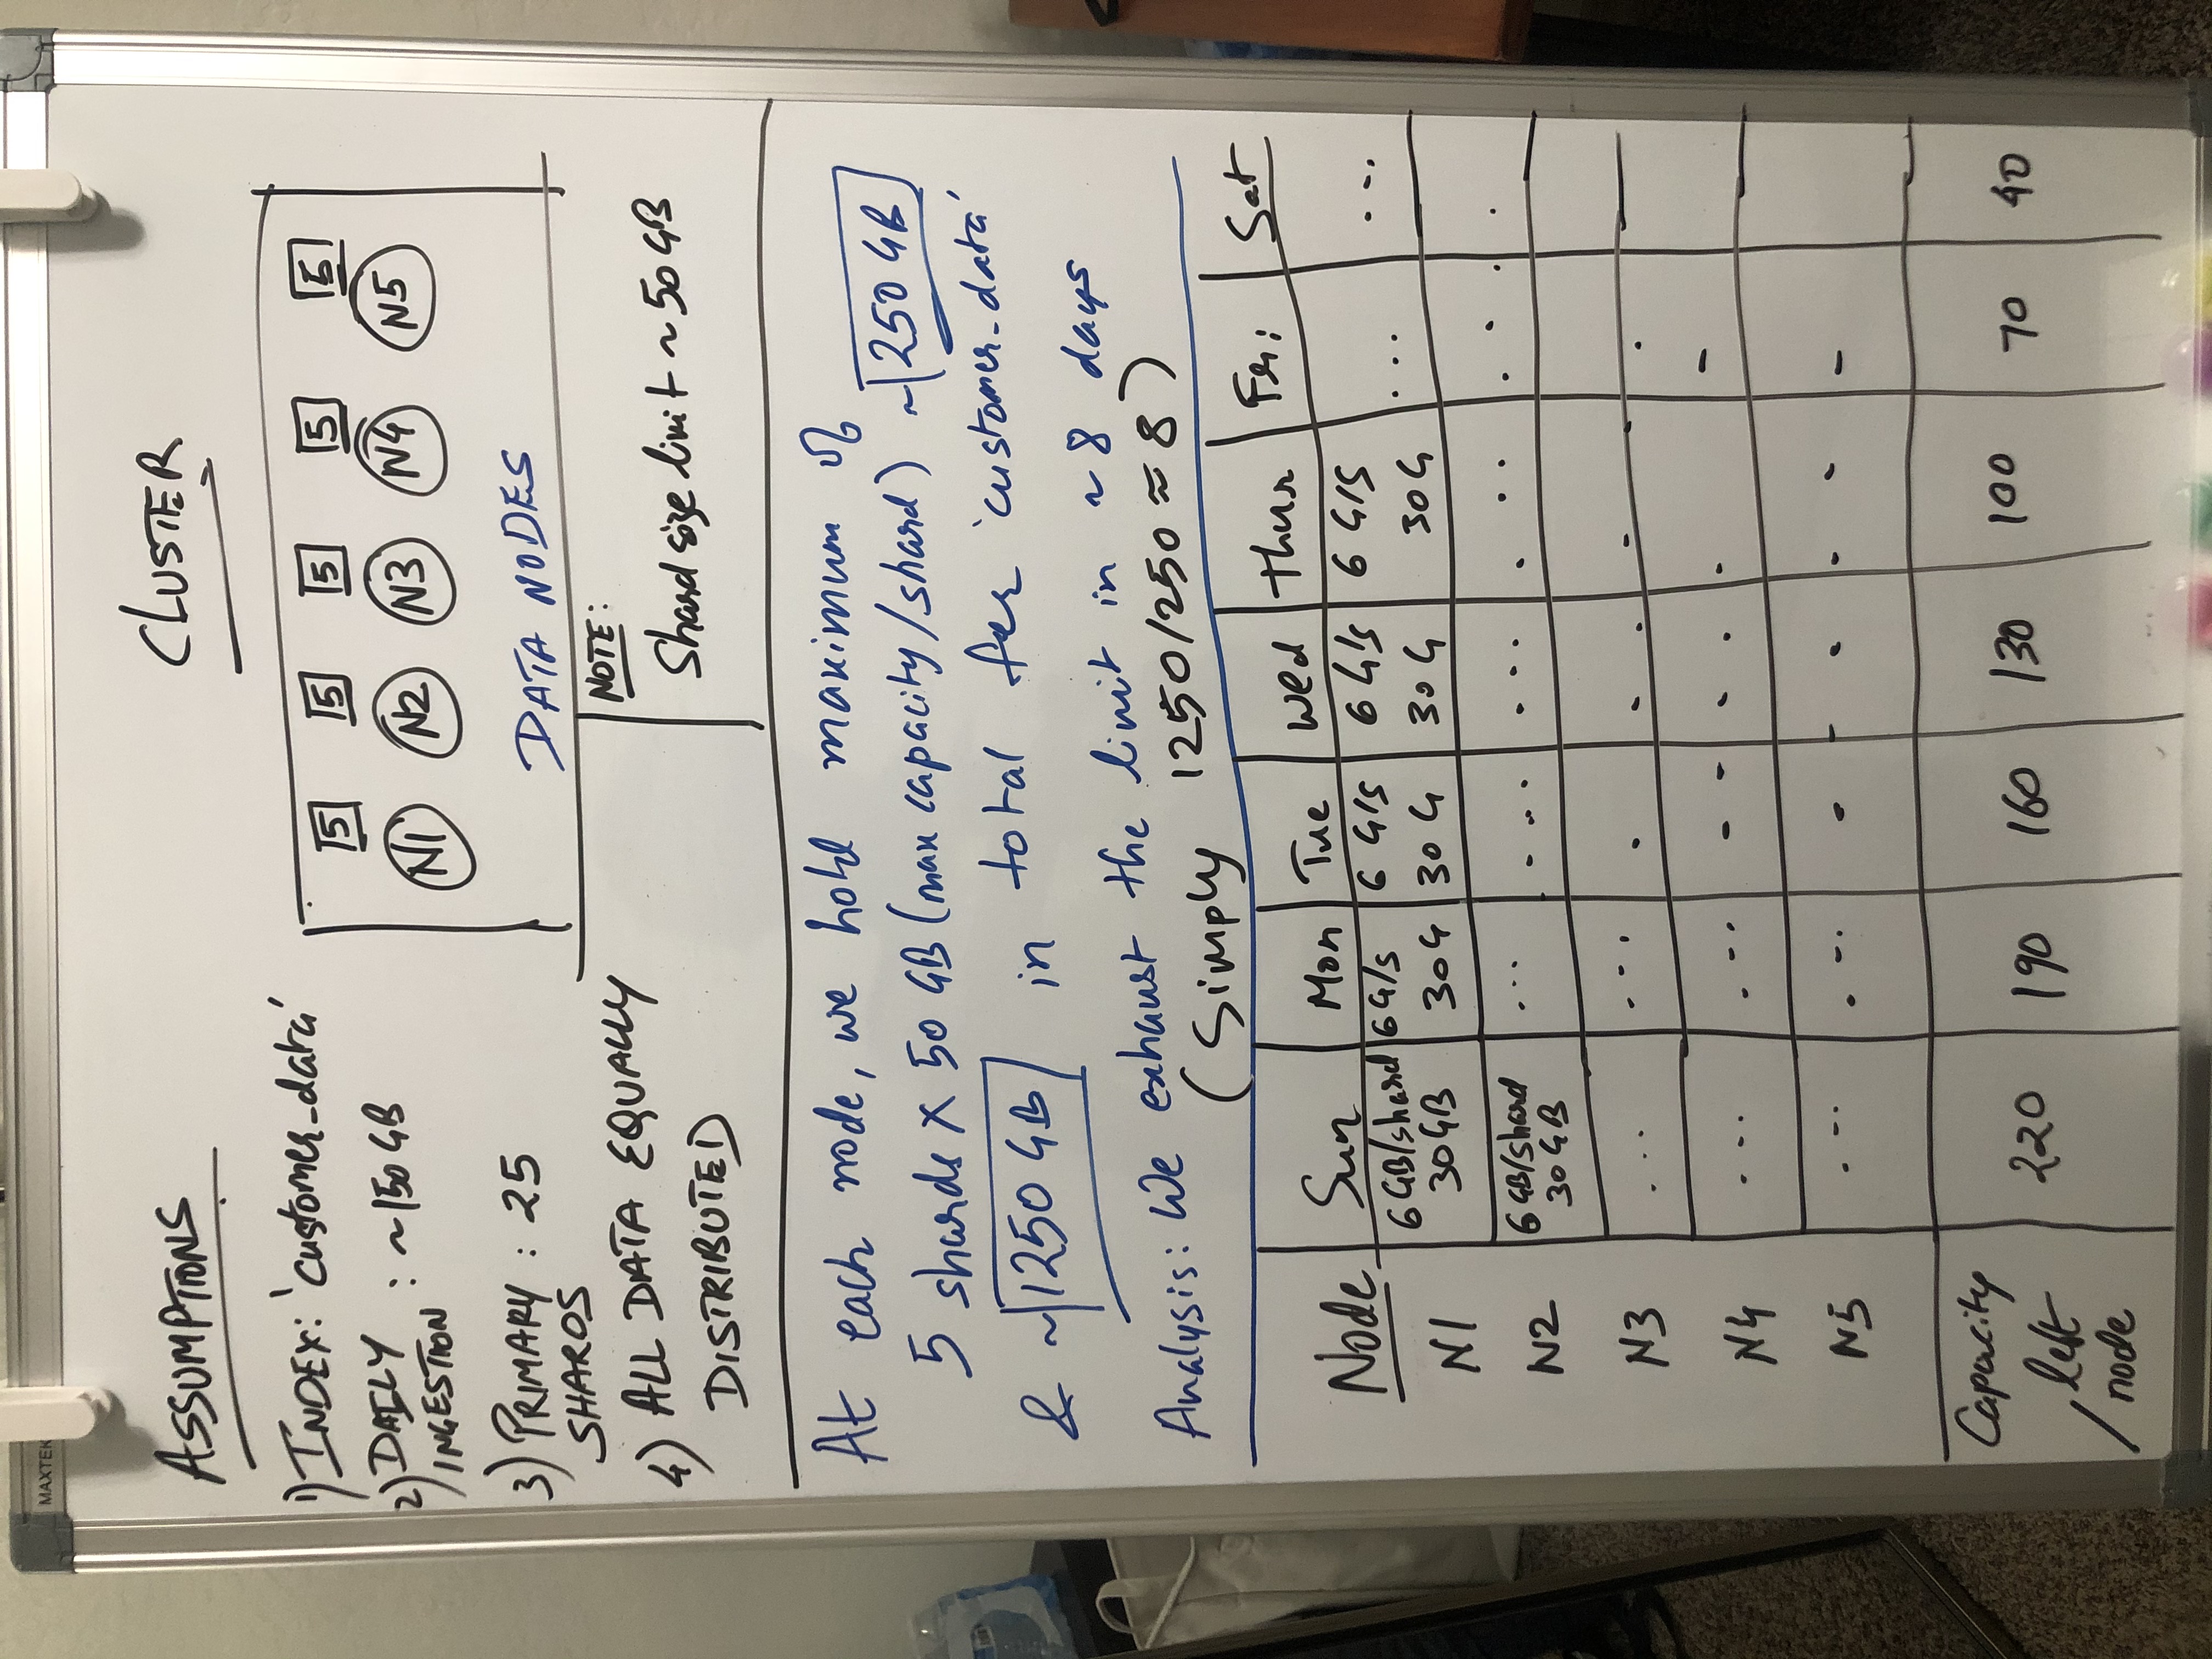 MAXTEK
ASSUMPTIONS
1) INDEX: 'customer_data'
2) DAILY
INGESTION : ~150 GB
3) PRIMARY : 25
SHARDS
4) ALL DATA EQUALLY
DISTRIBUTED
CLUSTER
5 5 5 5 5
N1 N2 N3 N4 N5
DATA NODES
NOTE:
Shard size limit ~50 GB
At each node, we hold maximum of
5 shards X 50 GB (max capacity/shard) ~ 250 GB
& ~ 1250 GB in total for 'customer_data'
Analysis: We exhaust the limit in ~ 8 days
(Simply 1250/250 ≈ 8)
Node Sun Mon Tue Wed Thur Fri Sat
6 GB/shard 6 G/s 6 G/s 6 G/s 6 G/S ... ...
N1 30GB 30G 30 G 30 G 30G
6 GB/shard ... ... ... ... ... .
N2 30 GB
N3 ... ... . . . . .
N4 ... ... - - . . . -
N5 ... ... . - . . . -
Capacity
left 220 190 160 130 100 70 40
/ node